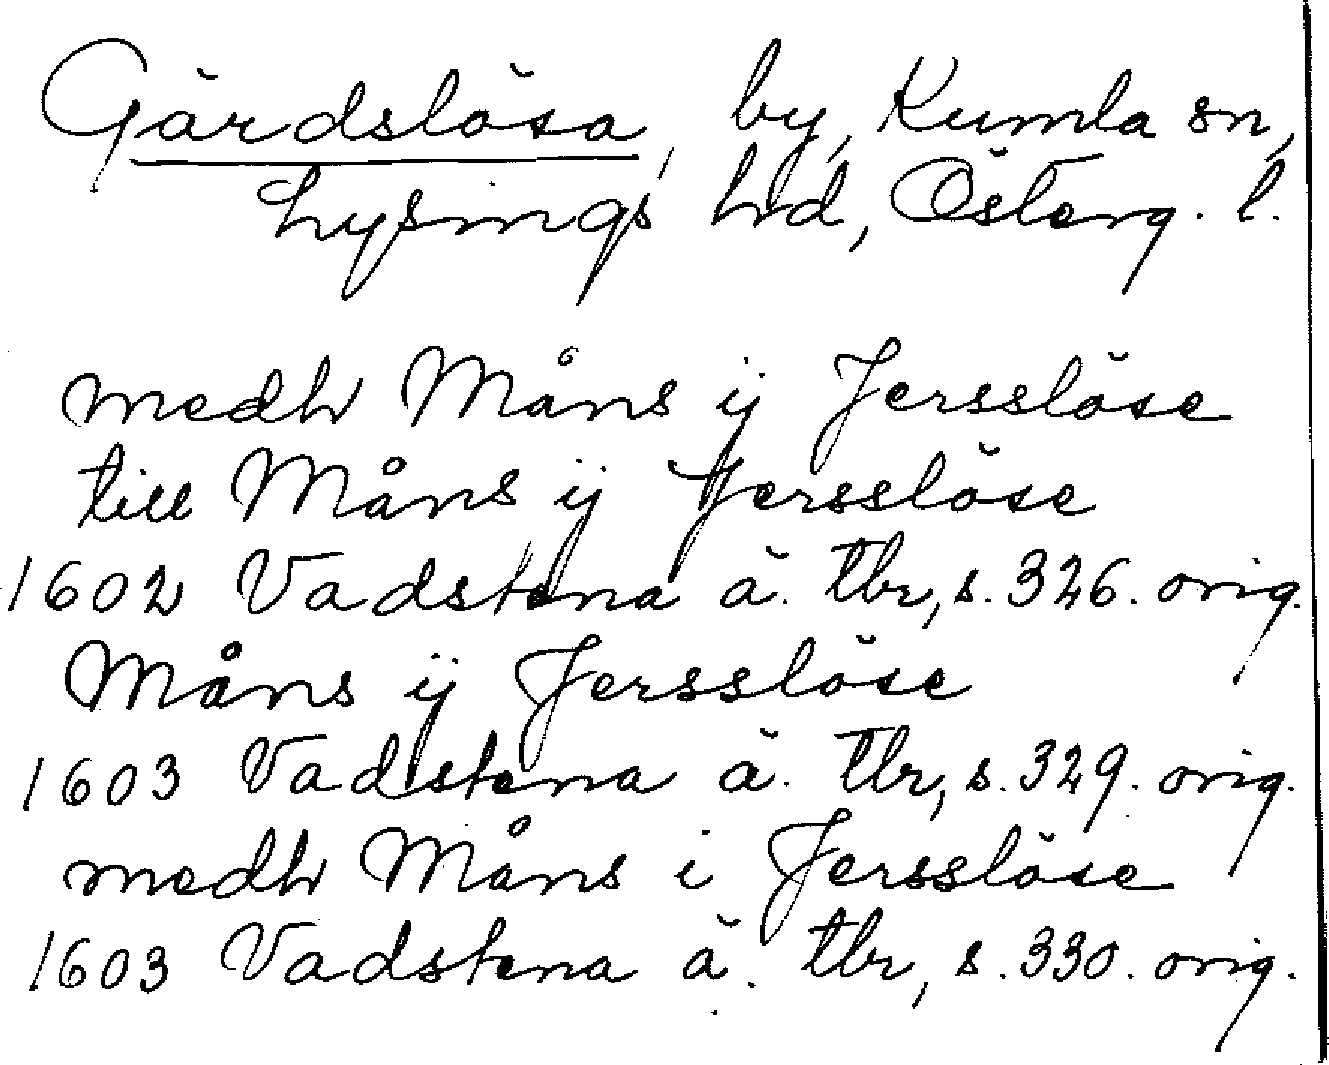 Gärdslösa, by, Kumla sn,
Lysings hd, Österg. l.
medh Måns ij Jersslöse
till Måns ij Jersslöse
1602 Vadstena ä. tbr, s. 326. orig.
Måns ij Jersslöse
1603 Vadstena ä. tbr, s. 329. orig.
medh Måns i Jersslöse
1603 Vadstena ä. tbr, s. 330. orig.